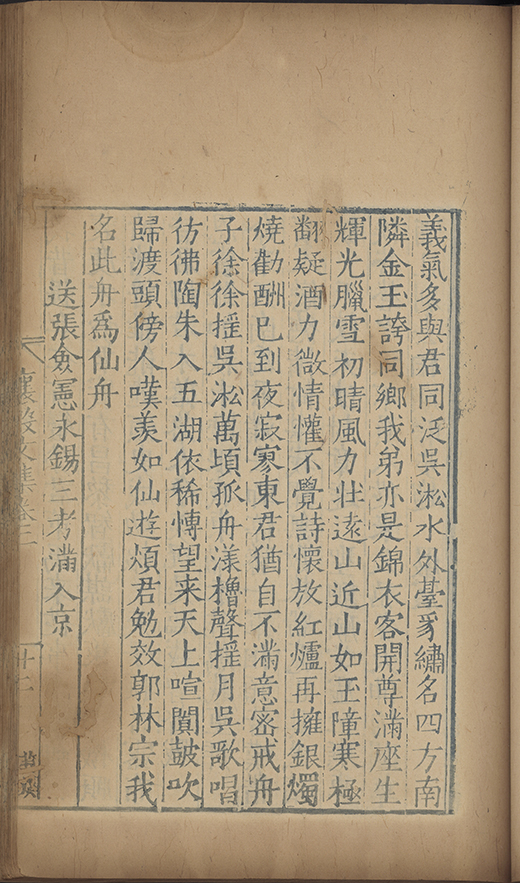 義氣多與君同泛吳淞水外臺豸繡名四方南
隣金玉誇同鄉我弟亦是錦衣客開尊滿座生
輝光臘雪初晴風力壯遠山近山如玉障寒極
翻疑酒力微情懽不覺詩懷放紅爐再擁銀燭
燒勸酬已到夜寂寥東君猶自不滿意密戒舟
子徐徐摇吳淞萬頃孤舟漾櫓聲摇月吳歌唱
彷彿陶朱入五湖依稀慱望来天上喧闐鼓吹
歸渡頭傍人嘆羨如仙遊煩君勉效郭林宗我
名此舟爲仙舟
送張僉憲永錫三考滿入京
襄毅文集卷二
十二